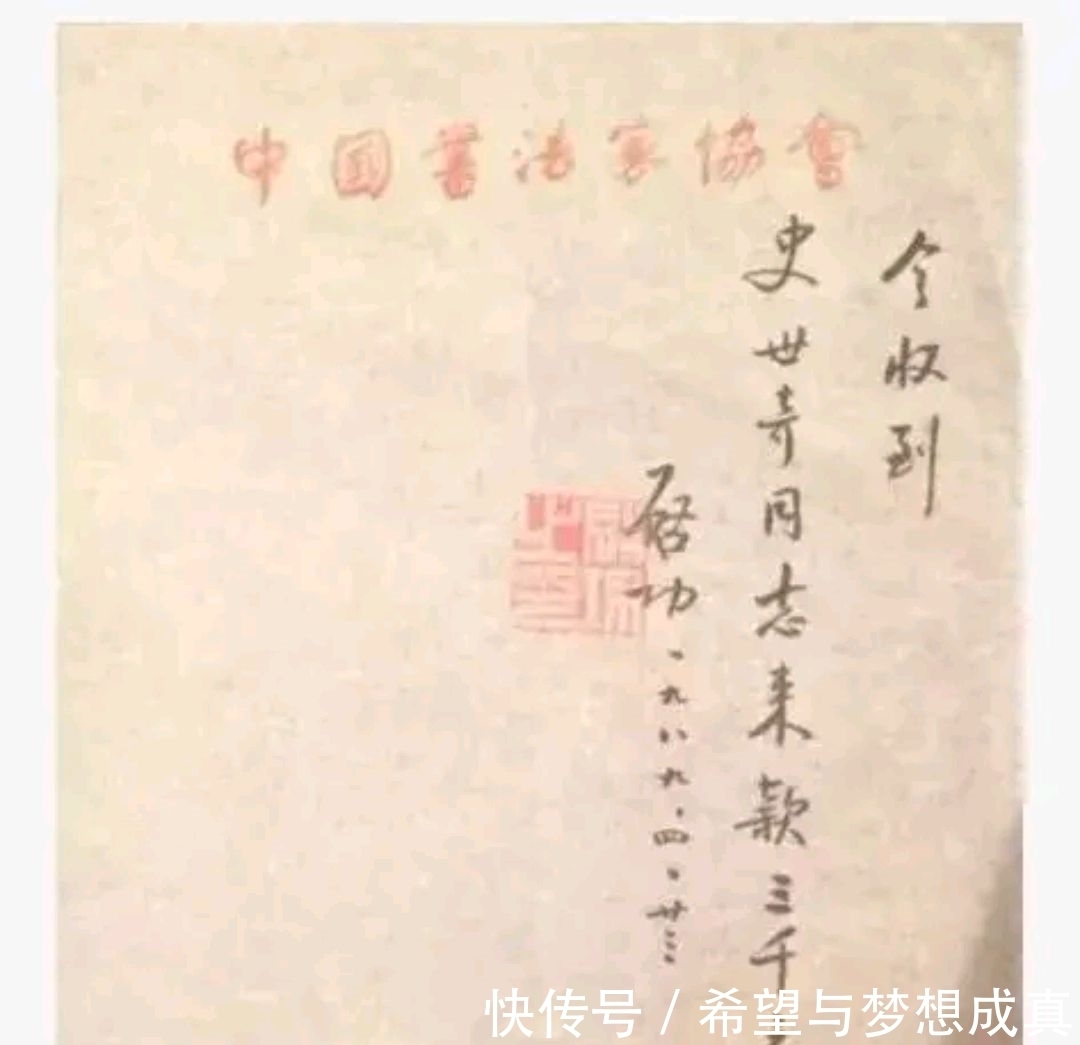 中国書法家協會
今收到
史世奇同志来款三千
启功 一九八九、四、廿三
快传号 / 希望与梦想成真